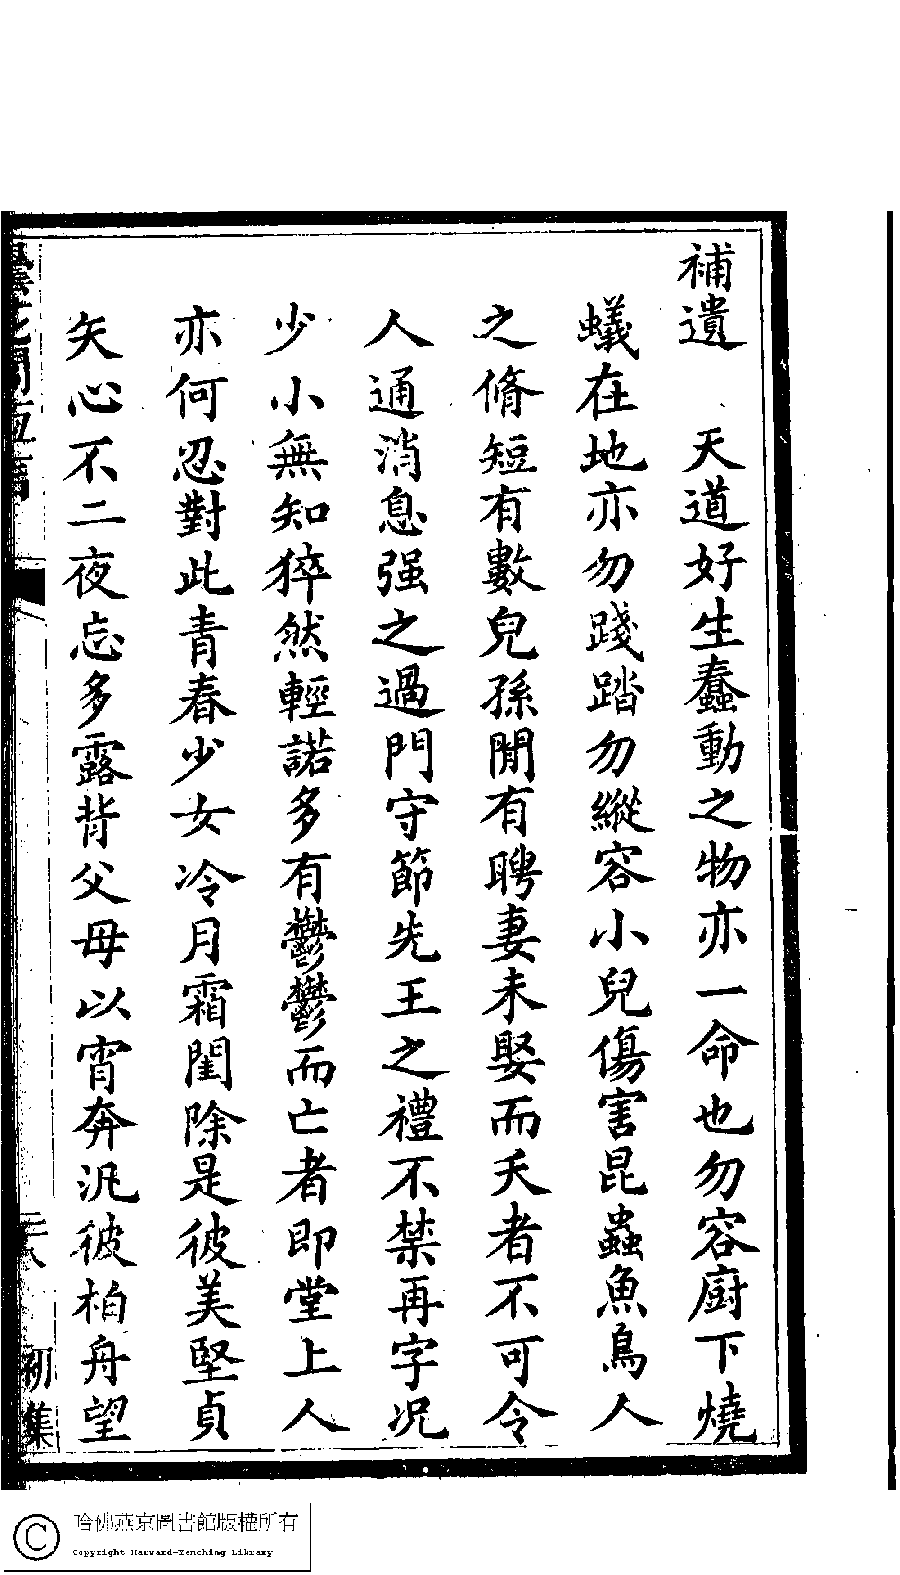 補遺　天道好生蠢動之物亦一命也勿容廚下燒
蟻在地亦勿踐踏勿縱容小兒傷害昆蟲魚鳥人
之脩短有數兒孫閒有聘妻未娶而夭者不可令
人通消息强之過門守節先王之禮不禁再字况
少小無知猝然輕諾多有鬱鬱而亡者即堂上人
亦何忍對此青春少女冷月霜閨除是彼美堅貞
矢心不二夜忘多露背父母以宵奔汎彼柏舟望
初集
哈佛燕京圖書館版權所有
Copyright Harvard-Yenching Library